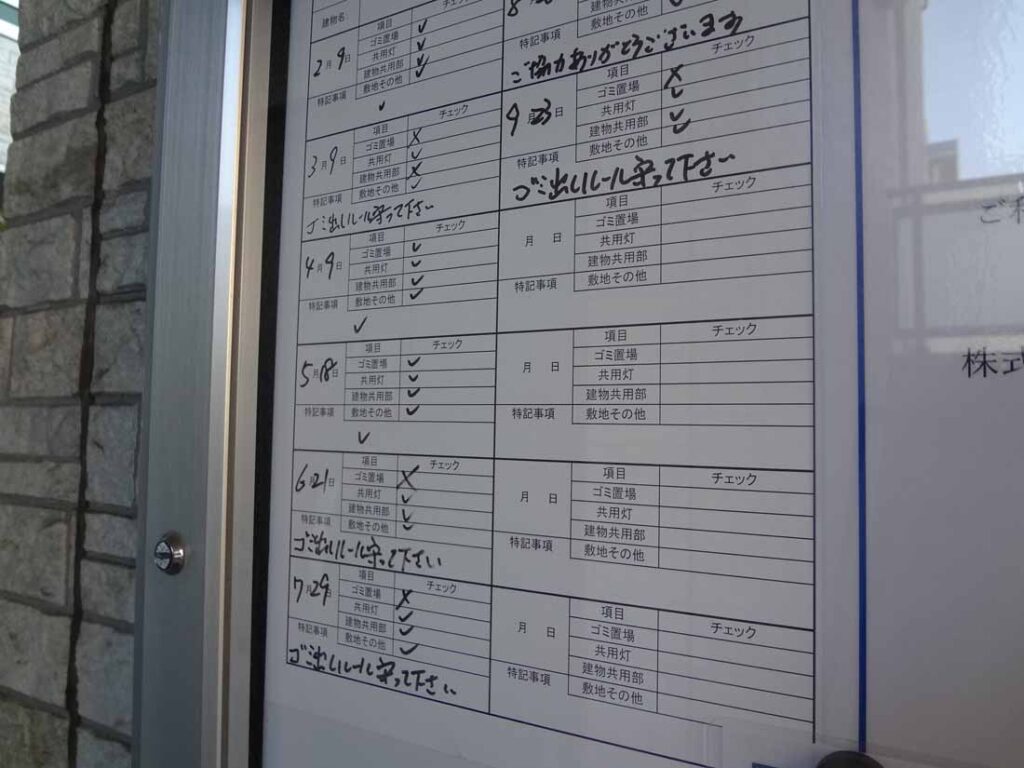 建物名
2月9日
項目 チェック
ゴミ置場 ✓
共用灯 ✓
建物共用部 ✓
敷地その他 ✓
特記事項
✓
3月9日
項目 チェック
ゴミ置場 ×
共用灯 ✓
建物共用部 ×
敷地その他 ✓
特記事項
ゴミ出しルール守って下さい
4月9日
項目 チェック
ゴミ置場 ✓
共用灯 ✓
建物共用部 ✓
敷地その他 ✓
特記事項
✓
5月18日
項目 チェック
ゴミ置場 ✓
共用灯 ✓
建物共用部 ✓
敷地その他 ✓
特記事項
✓
6月21日
項目 チェック
ゴミ置場 ×
共用灯 ✓
建物共用部 ✓
敷地その他 ✓
特記事項
ゴミ出しルール守って下さい
7月29日
項目 チェック
ゴミ置場 ×
共用灯 ✓
建物共用部 ✓
敷地その他 ✓
特記事項
ゴミ出しルール守って下さい
8
敷地その他 ✓
特記事項
ご協力ありがとうございます
9月23日
項目 チェック
ゴミ置場 ×
共用灯 ✓
建物共用部 ✓
敷地その他 ✓
特記事項
ゴミ出しルール守って下さい
月 日
項目 チェック
ゴミ置場
共用灯
建物共用部
敷地その他
特記事項
月 日
項目 チェック
ゴミ置場
共用灯
建物共用部
敷地その他
特記事項
月 日
項目 チェック
ゴミ置場
共用灯
建物共用部
敷地その他
特記事項
月 日
項目 チェック
ゴミ置場
共用灯
建物共用部
敷地その他
特記事項
ご利
株式